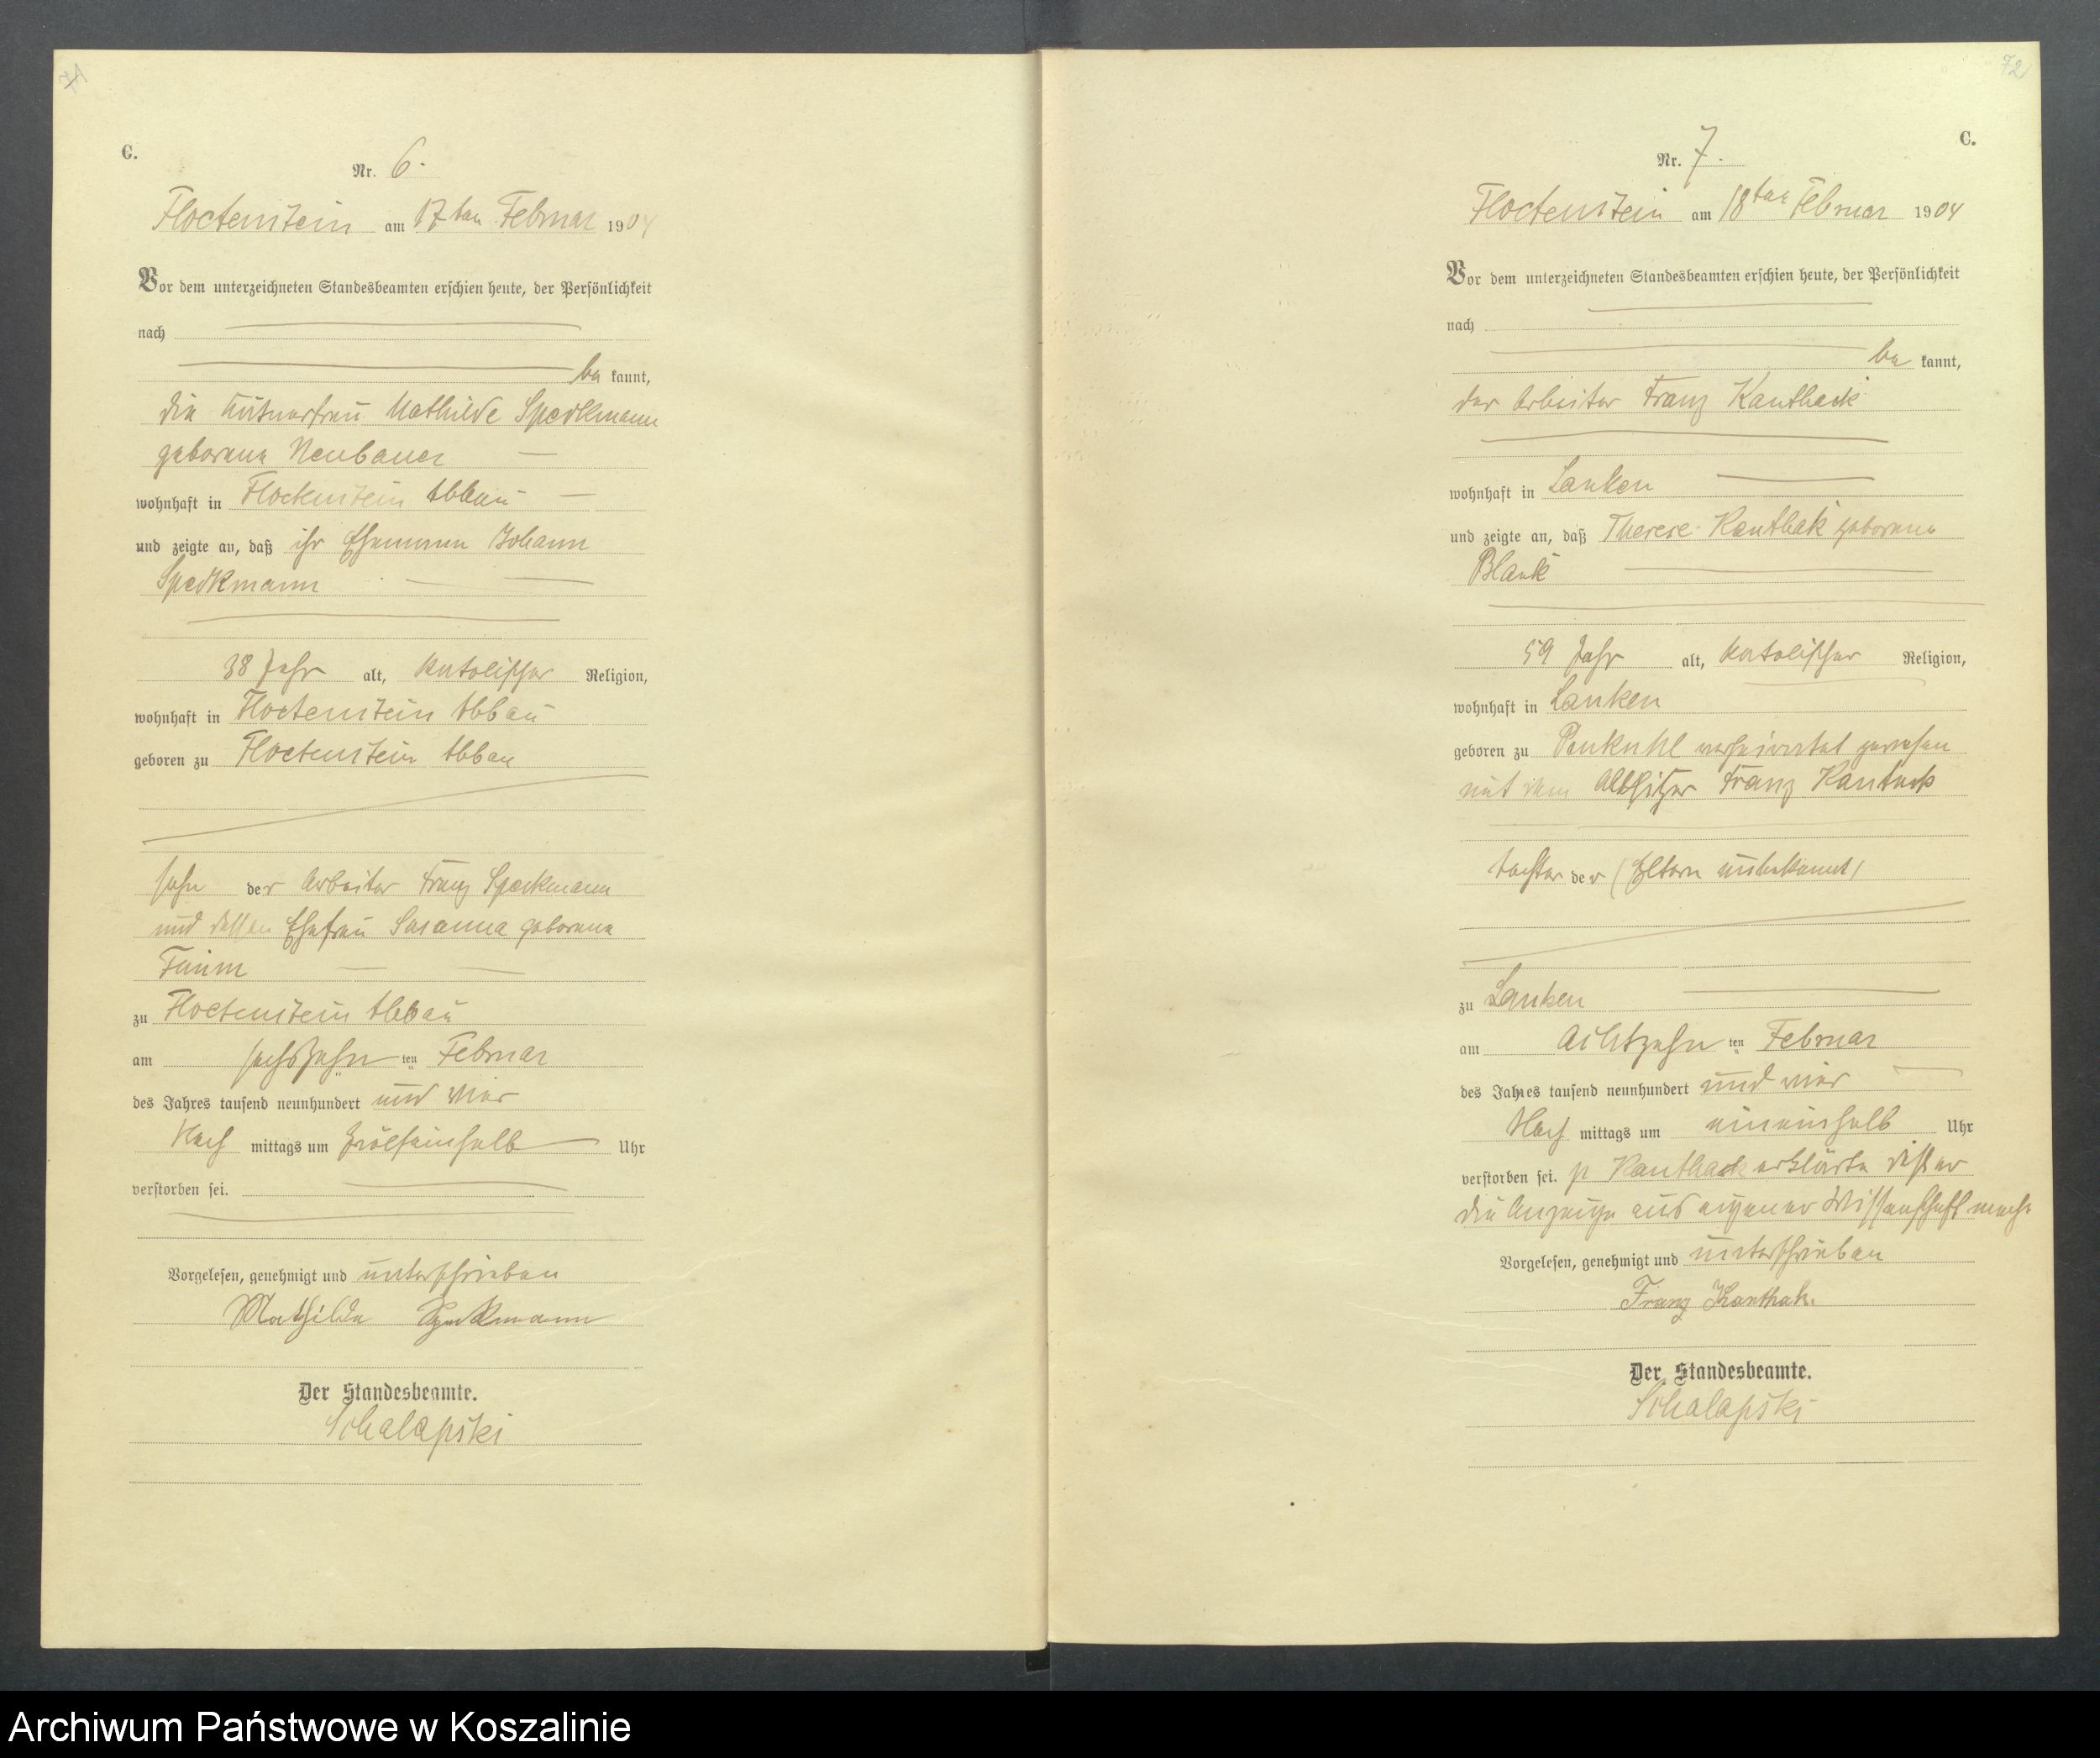 C.
Nr. 6.
Floetenstein am 17ten Februar 1904
Vor dem unterzeichneten Standesbeamten erschien heute, der Persönlichkeit
nach
be kannt,
die Mathilde Speckmann
geborene Neubauer
wohnhaft in Flöetenstein Abbau
und zeigte an, daß ihr Ehemann Johann
Speckmann
38 Jahr alt, katolischer Religion,
wohnhaft in Floetenstein Abbau
geboren zu Floetenstein Abbau
Sohn der Arbeiter Franz Speckmann
und dessen Ehefrau Susanna geborene
zu Floetenstein Abbau
am sechszehn ten Februar
des Jahres tausend neunhundert und vier
Nach mittags um zwölfeinhalb Uhr
verstorben sei.
Vorgelesen, genehmigt und unterschrieben
Mathilde Speckmann
Der Standesbeamte.
Schalapski
72
C.
Nr. 7.
Floetenstein am 18ten Februar 1904
Vor dem unterzeichneten Standesbeamten erschien heute, der Persönlichkeit
nach
be kannt,
der Arbeiter Franz Kanthack
wohnhaft in Lanken
und zeigte an, daß Therese Kanthak geborene
Blank
59 Jahr alt, katolischer Religion,
wohnhaft in Lanken
geboren zu Penkuhl verheiratet gewesen
mit dem Altsitzer Franz Kantack
Tochter der (Eltern unbekannt)
zu Lanken
am Achtzehn ten Februar
des Jahres tausend neunhundert und vier
Nach mittags um eineinhalb Uhr
verstorben sei. p Kanthack erklärte daß er
die Anzeige aus eigener Wissenschaft mache
Vorgelesen, genehmigt und unterschrieben
Franz Kanthak.
Der Standesbeamte.
Schalapski
Archiwum Państwowe w Koszalinie